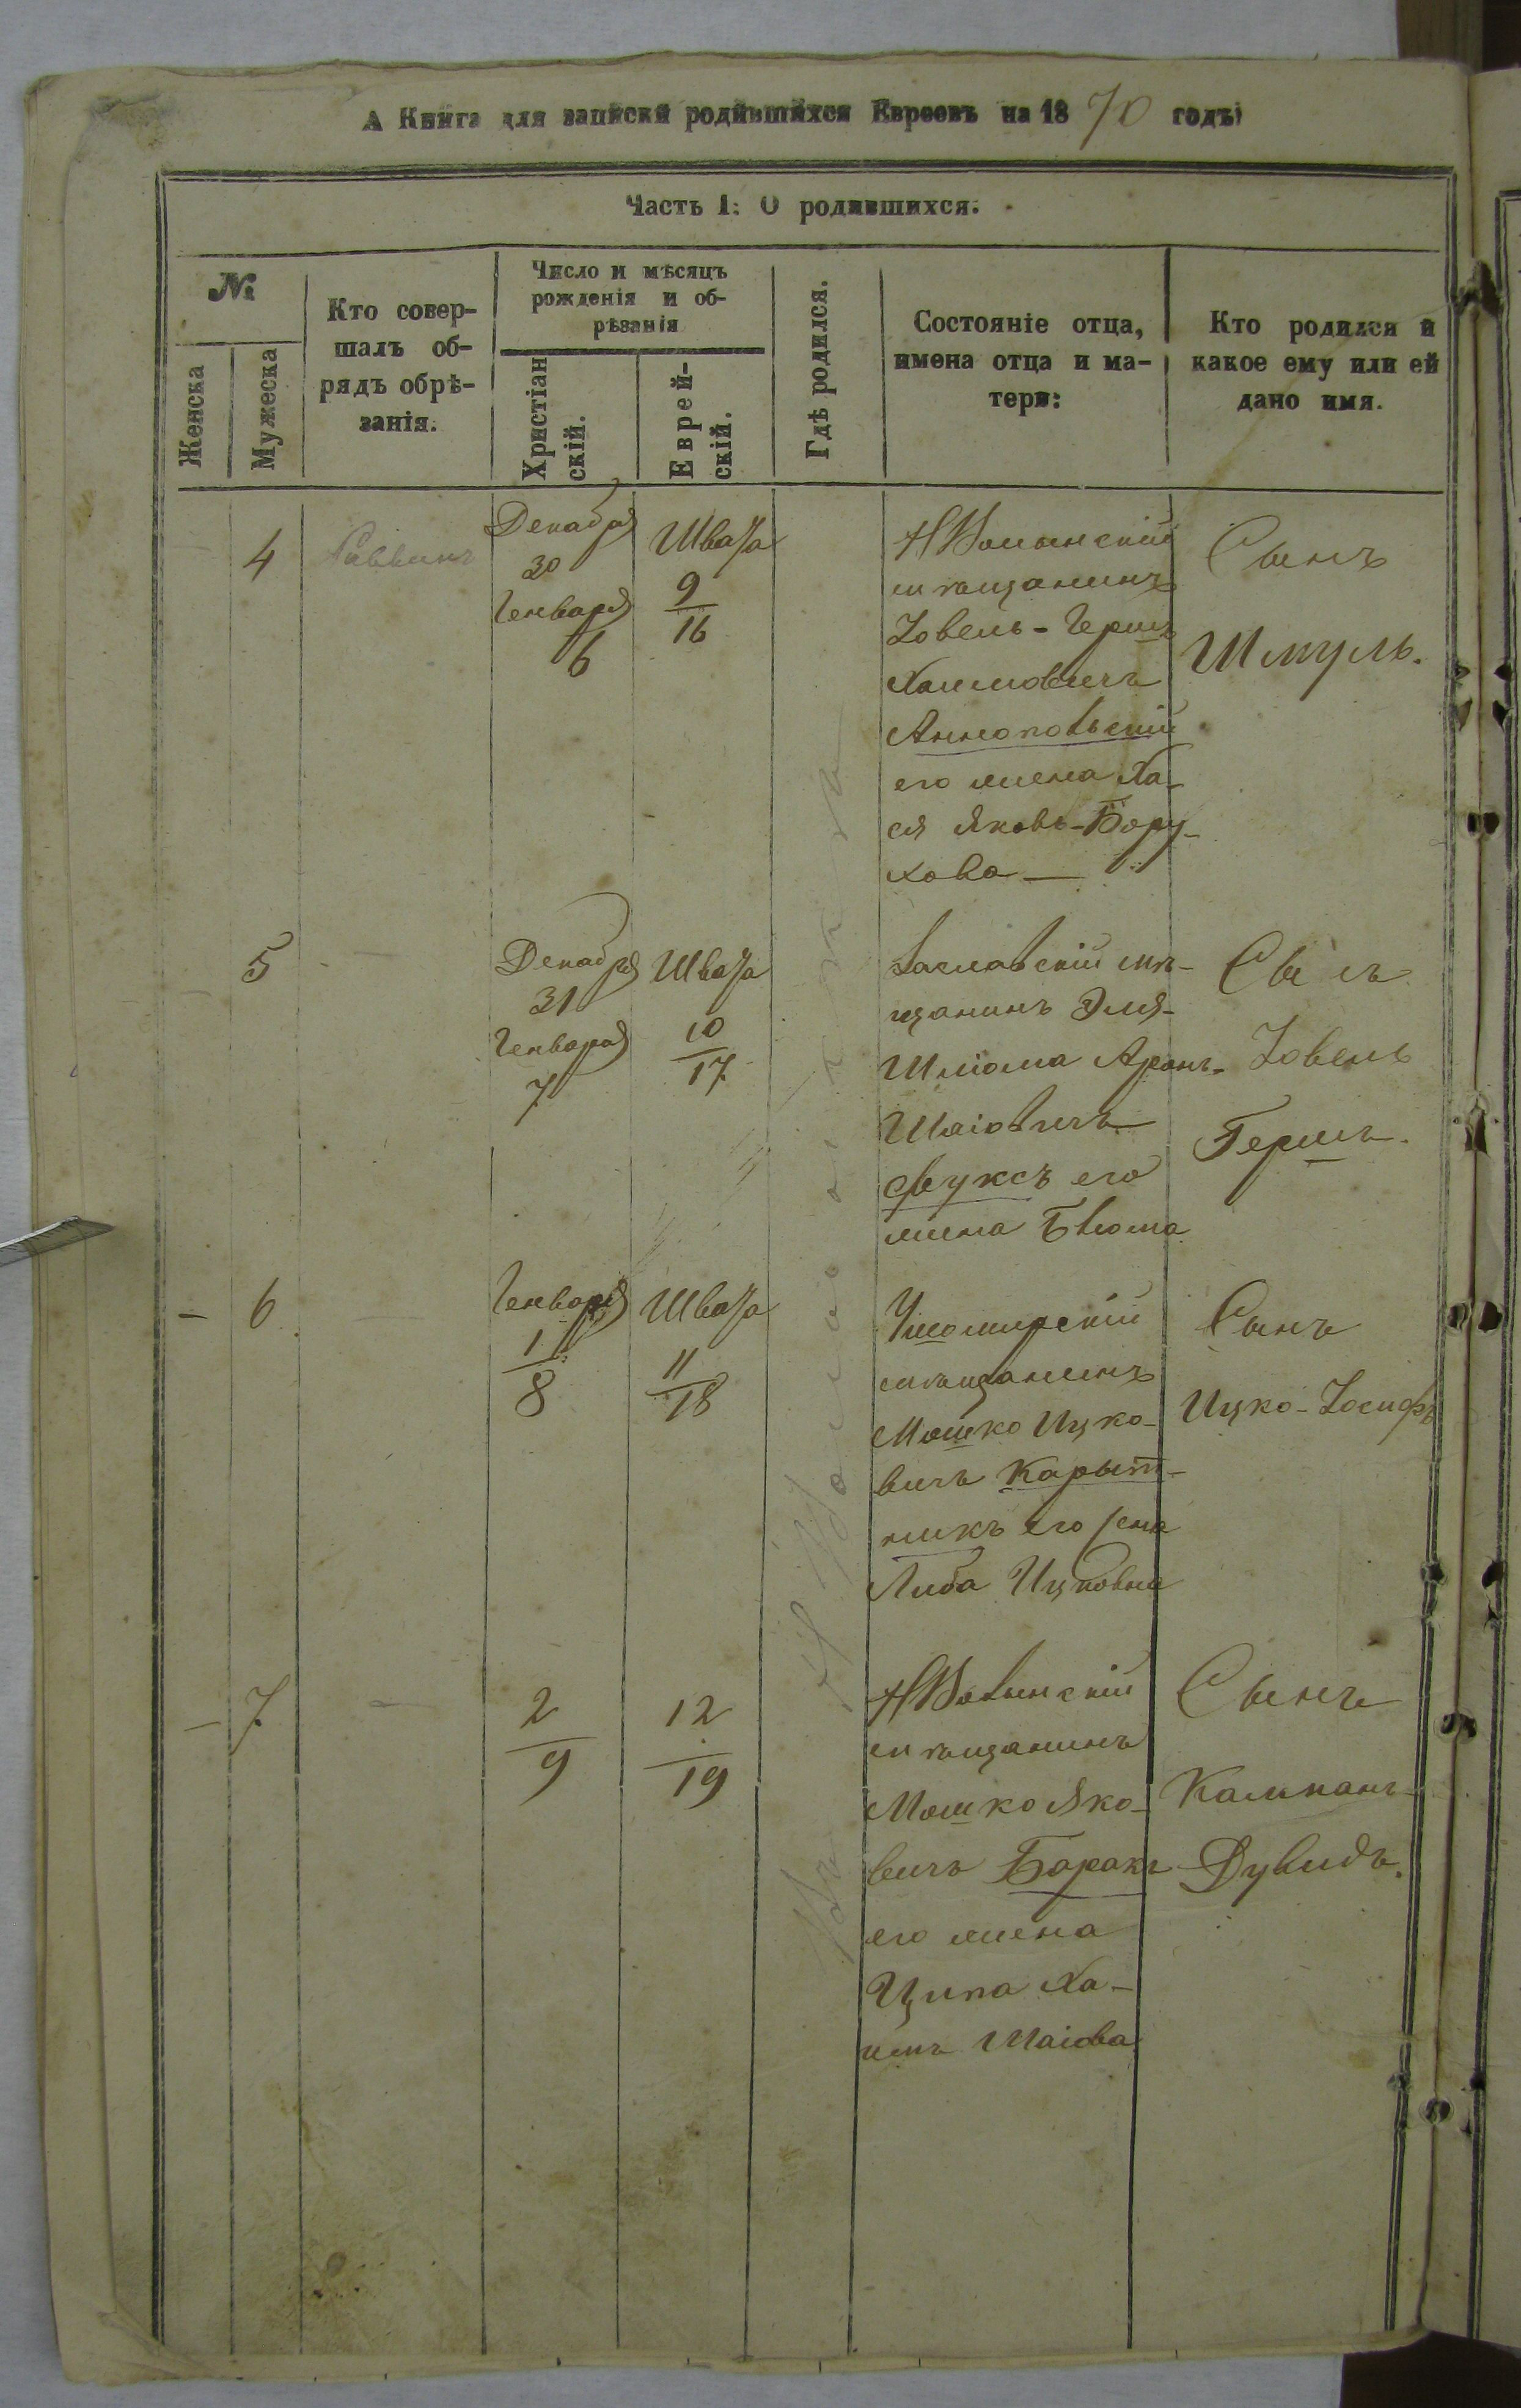 А Книга для записки родившихся Евреевъ на 1870 годъ
Часть I: О родившихся.
№
Женска
Мужеска
Кто совер-
шалъ об-
рядъ обрѣ-
занія.
Число и мѣсяцъ
рожденія и об-
рѣзанія
Христіан
скій.
Еврей-
скій.
Гдѣ родился.
Состояніе отца,
имена отца и ма-
тери:
Кто родился и
какое ему или ей
дано имя.
4
Раввинъ
Декабря
30
Генваря
6
Швата
9
16
НВолынскій
мѣщанинъ
Іовель-Гершъ
Хаимовичъ
Аннопольскій
его жена Ха-
ся Яковъ-Бору-
хова
Сынъ
Шмуль.
5
Декабря
31
Генваря
7
Швата
10
17
Заславскій мѣ-
щанинъ Эля-
Шліома Аронъ-
Шаіовичъ
Фуксъ его
жена Блюма
Сынъ
Іовель
Гершъ.
6
Генваря
1
8
Швата
11
18
Житомирскій
мѣщанинъ
Мошко Ицко-
вичъ Карыт-
никъ его жена
Либа Ицковна
Сынъ
Ицко-Іосифъ
7
2
9
12
19
НВолынскій
мѣщанинъ
Мошко Яко-
вичъ Баракъ
его жена
Ципа Ха-
имъ Шаіова
Сынъ
Калманъ-
Дувидъ.